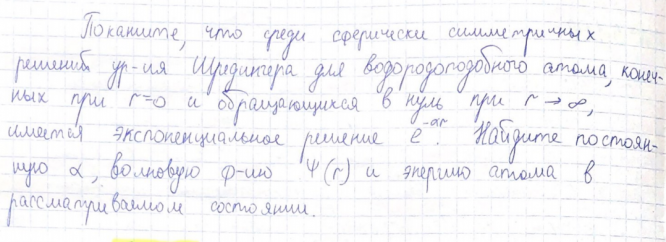 Покажите, что среди сферически симметричных
решений ур-ия Шредингера для водородоподобного атома, конеч-
ных при r=0 и обращающихся в нуль при r→∞,
имеется экспоненциальное решение e^-αr. Найдите постоян-
ную α, волновую ф-ию Ψ(r) и энергию атома в
рассматриваемом состоянии.